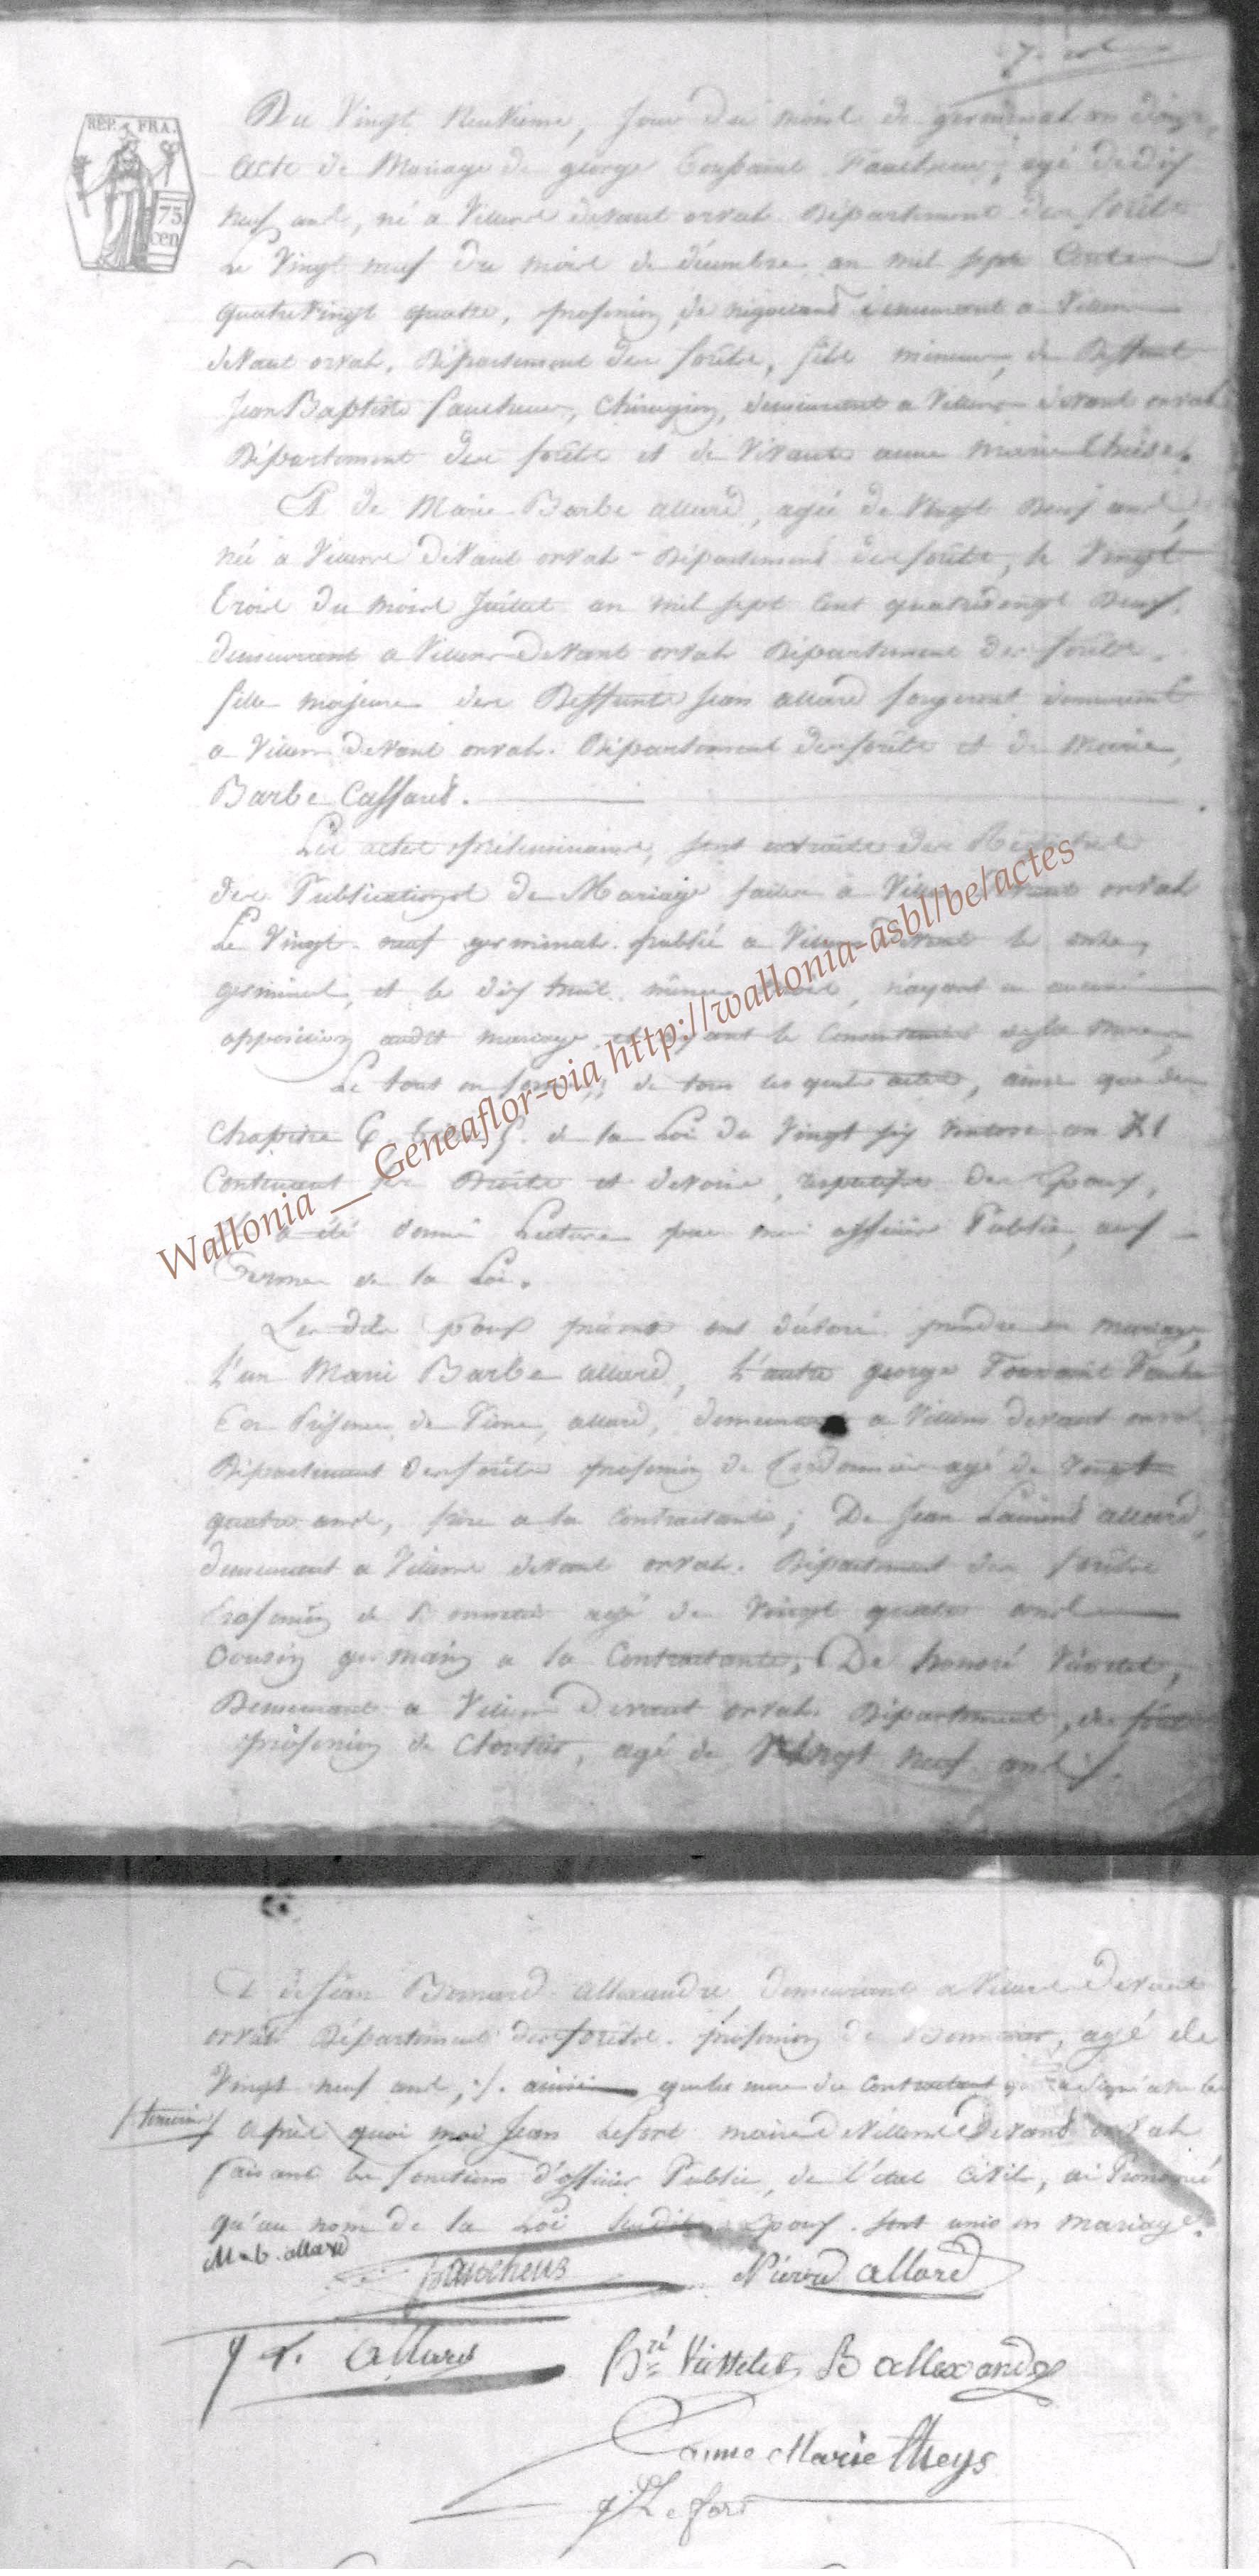 REP. FRA.
75
cen
Du Vingt Neuvieme, Jour du mois de germinal an douze,
Acte de Mariage de george Toussaint Faucheur, agé de dix
neuf ans, né a Villers devant orval Département des forêts
Le Vingt neuf du mois de décembre an mil sept Cents
quatre Vingt quatre, profession de négociant demeurant a Villers
devant orval, Département des forêts, fils mineur, de Deffunt
Jean Baptiste faucheur, Chirurgien, demeurant a Villers devant orval
Département des forêts et de Vivante anne Marie Theise.
Et de Marie Barbe allard, agée de Vingt Deux ans,
née a Villers devant orval Département des forêts, le Vingt
trois du mois Juillet an mil sept Cent quatrevingt Deux.
demeurant a Villers devant orval Département des forêts.
fille majeure des Deffunts Jean allard forgeront demeurant
a Villers devant orval. Département des forêts et de Marie
Barbe Cassart.
Les actes préliminaires, sont extraits des Registres
des Publications de Mariage faites a Villers devant orval
Le Vingt neuf germinal. publié a Villers devant le onze
germinal, et le dix huit même mois, n'ayant eu aucune
opposition audit mariage et ayant le Consentement de la mere
Le tout en forme; de tous lesquels actes, ainsi que du
Chapitre 6 titre 5. de la Loi du Vingt six Ventose an XI
Contenant les Droits et devoirs, respectifs des Epoux,
a été donné Lecture par moi officier Public, aux
Termes de la Loi.
Les dits Epoux présents ont déclaré prendre en mariage,
L'un Marie Barbe allard, L'autre george Toussaint Fauche
En Présence de Pierre, allard, demeurant a Villers devant orval
Département des forêts profession de Cordonnier agé de Vingt
quatre ans, frère a la Contractante; De Jean Laurent allard,
demeurant a Villers devant orval. Département des forêts
Profession de agé de Vingt quatre ans
Cousin germain a la Contractante; De honoré
Demeurant a Villers devant orval Département, des forêts
profession de Cloutier, agé de Vingt neuf ans /.
Et de Jean Bernard allexandre, demeurant a Villers Devant
orval Département des forêts. profession de agé de
Vingt neuf ans, ./. ainsi que les mere du Contractant qui a signé avec les
/ temoins /
après quoi moi Jean Lefort maire de Villers Devant orval
faisant les fonctions d'officier Public, de l'état Civil, ai Prononcé
qu'au nom de la Loi lesdits Epoux. sont unis en mariage.
M. b. allard
faucheur
Pierre allard
J L. allard
B allexandre
anne Marie theys
J Lefort
Wallonia __ Geneaflor-via http://wallonia-asbl/be/actes